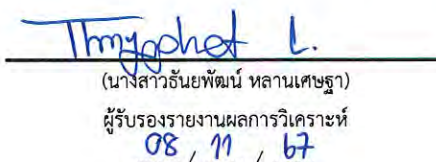 L.
(นางสาวธันยพัฒน์ หลานเศษฐา)
ผู้รับรองรายงานผลการวิเคราะห์
08 / 11 / 67